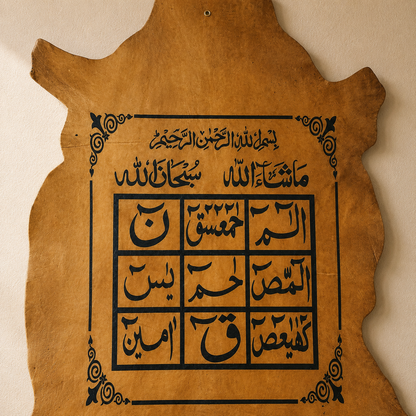 بسم الله الرحمن الرحيم
ماشاء الله سبحان الله
الم حمعسق ن
المص حم يس
كهيعص ق امين